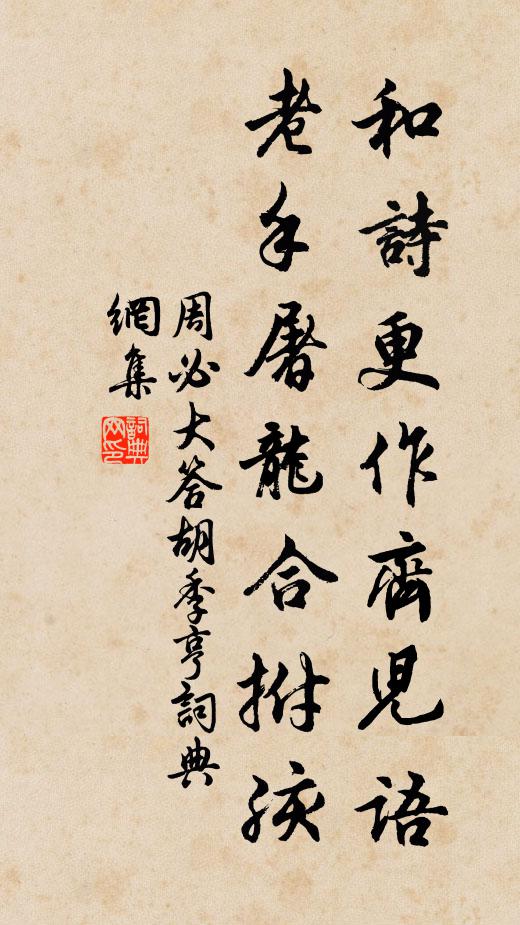 和詩更作齊兒語
老手屠龍合拊孩
周必大答胡季亨詞典
網集
詞典
网印